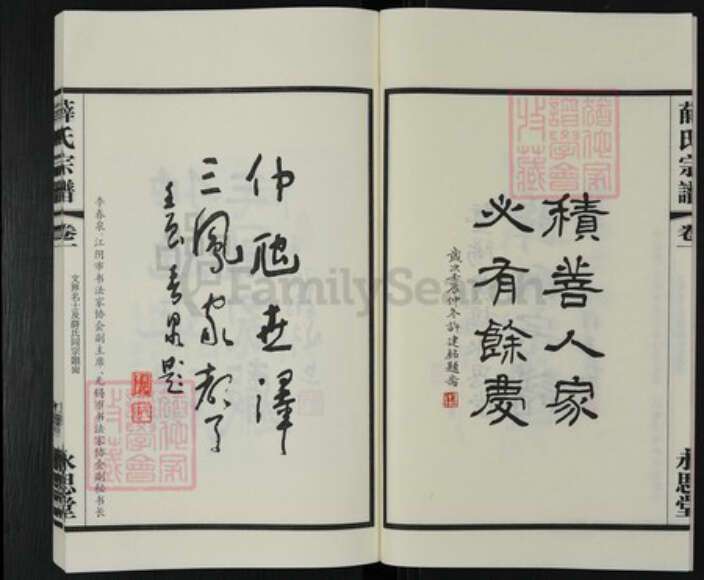 薛氏宗譜
卷一
永思堂
積善人家
必有餘慶
歲次壬辰仲冬許建銘題
薛氏宗譜
卷一
文界名士及薛氏同宗題詞
永思堂
仲虺世澤
三鳳家聲
李春泉，江阴市书法家协会副主席、无锡市书法家协会副秘书长
FamilySearch